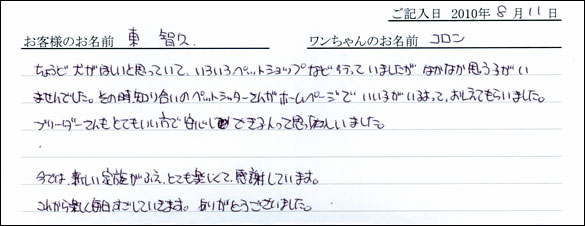 ご記入日 2010年 8月11日
お客様のお名前 東 智久 ワンちゃんのお名前 コロン
ちょうど犬がほしいと思っていて、いろいろペットショップなど行っていましたが なかなか思う子がい
ませんでした。その時知り合いのペットシッターさんがホームページで いい子がいるよって、おしえてもらいました。
ブリーダーさんもとてもいい方で 安心してできる人って思いました。
今では、新しい家族がふえ、とても楽しくて、感謝しています。
これから楽しく毎日すごしていきます。 ありがとうございました。